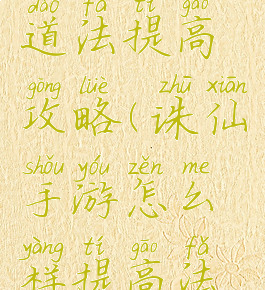 dào fǎ tí gāo
道法提高
gōng lüè zhū xiān
攻略(诛仙
shǒu yóu zěn me
手游怎么
yàng tí gāo fǎ
样提高法